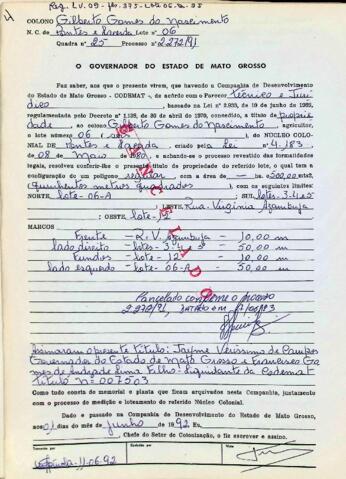 Reg. LV. 09 - fls. 375 - Lote 06 Q. 25
COLONO Gilberto Gomes do Nascimento
N. C. de Pontes e Lacerda Lote n.º 06
Quadra n.º 25 Processo n.º 2.272/91
O GOVERNADOR DO ESTADO DE MATO GROSSO
Faz saber, aos que o presente virem, que havendo a Companhia de Desenvolvimento
do Estado de Mato Grosso - CODEMAT -, de acôrdo com o Parecer técnico e Jurí
dico, baseado na Lei n.º 2.933, de 19 de junho de 1969,
regulamentado pelo Decreto n.º 1.138, de 30 de abril de 1970, concedido, a título de proprie
dade, ao colono Gilberto Gomes do Nascimento, agricultor,
o lote número 06 do NÚCLEO COLO-
NIAL de Pontes e Lacerda, criado pela Lei n.º 4.183,
de 08 de Maio de 1980, e achando-se o processo revestido das formalidades
legais, resolveu conferir-lhe o presente título de propriedade do referido lote, o qual tem a
configuração de um polígono regular com a área de ha 500,00 m2,
(quinhentos metros quadrados), com os seguintes limites:
NORTE, lote-06-A SUL, lotes-3.4 e 5
LESTE, Rua Virginia Azambuja
OESTE, lote-12
CANCELADO
MARCOS
Frente - R.V. Azambuja - 10,00 m.
lado direito - lotes-3.4 e 5 - 50,00 m.
Fundos - lote-12 - 10,00 m.
lado esquerdo - lote-06-A - 50,00 m.
Cancelado conforme o processo
2.272/91,
Assinaram o presente título: Jayme Verissimo de Campos
Governador do Estado de Mato Grosso e Francisco Go
mes de Andrade Lima Filho: Liquidante da Codemat
título nº 007503
Como tudo consta do memorial e planta que ficam arquivados nesta Companhia, juntamente
com o processo de medição e loteamento do referido Núcleo Colonial.
Dado e passado na Companhia de Desenvolvimento do Estado de Mato Grosso,
aos 01 dias do mês de junho de 1992 Eu,
Chefe do Setor de Colonização, o fiz escrever e assino.
Transcrito em
Conferido por
Visto
11-06-92